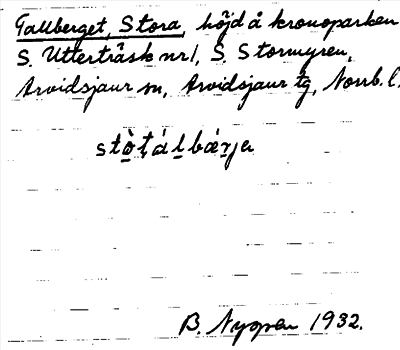 Tallberget, Stora, höjd å kronoparken
S. Utterträsk nr 1, S. Stormyren,
Arvidsjaur sn, Arvidsjaur tg, Norrb. l.
stòtálbærje
B. Nygren 1932.